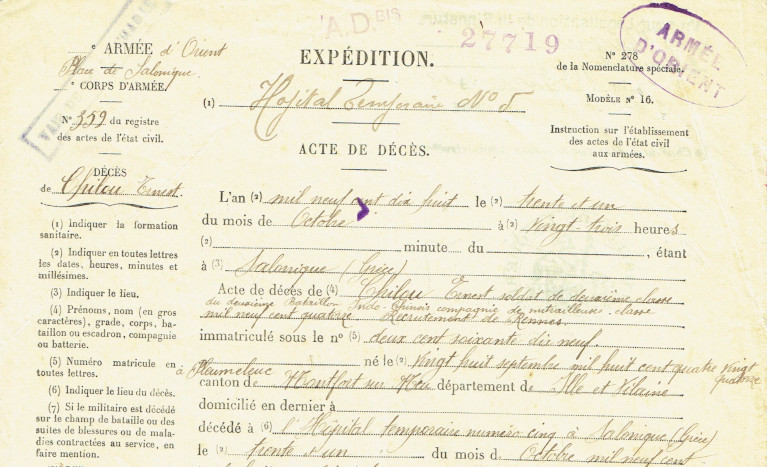 A.D BIS
27719
ARMÉE D'ORIENT
° ARMÉE d'Orient
Place de Salonique
° CORPS D'ARMÉE.
N° 352 du registre
des actes de l'état civil.
DÉCÈS
de Chilou Ernest.
(1) Indiquer la formation
sanitaire.
(2) Indiquer en toutes lettres
les dates, heures, minutes et
millésimes.
(3) Indiquer le lieu.
(4) Prénoms, nom (en gros
caractères), grade, corps, ba-
taillon ou escadron, compagnie
ou batterie.
(5) Numéro matricule en
toutes lettres.
(6) Indiquer le lieu du décès.
(7) Si le militaire est décédé
sur le champ de bataille ou des
suites de blessures ou de mala-
dies contractées au service, en
faire mention.
EXPÉDITION.
(1) Hopital Temporaire N° 5
ACTE DE DÉCÈS.
N° 278
de la Nomenclature spéciale.
MODÈLE N° 16.
Instruction sur l'établissement
des actes de l'état civil
aux armées.
L'an (2) mil neuf cent dix huit le (2) trente et un
du mois de Octobre à (2) Vingt-trois heures
(2) minute du , étant
à (3) Salonique (Grèce)
Acte de décès de (4) Chilou Ernest soldat de deuxième classe
du deuxième Bataillon Indo Chinois compagnie de mitrailleuse. classe
mil neuf cent quatorze Recrutement de Rennes
immatriculé sous le n° (5) deux cent soixante dix neuf
à Pleumeleuc né le (2) Vingt huit septembre mil huit cent quatre vingt
quatorze
canton de Montfort sur Meu département de Ille et Vilaine
domicilié en dernier à
décédé à (6) l'Hôpital temporaire numéro cinq à Salonique (Grèce)
le (2) trente et un du mois de Octobre mil neuf cent